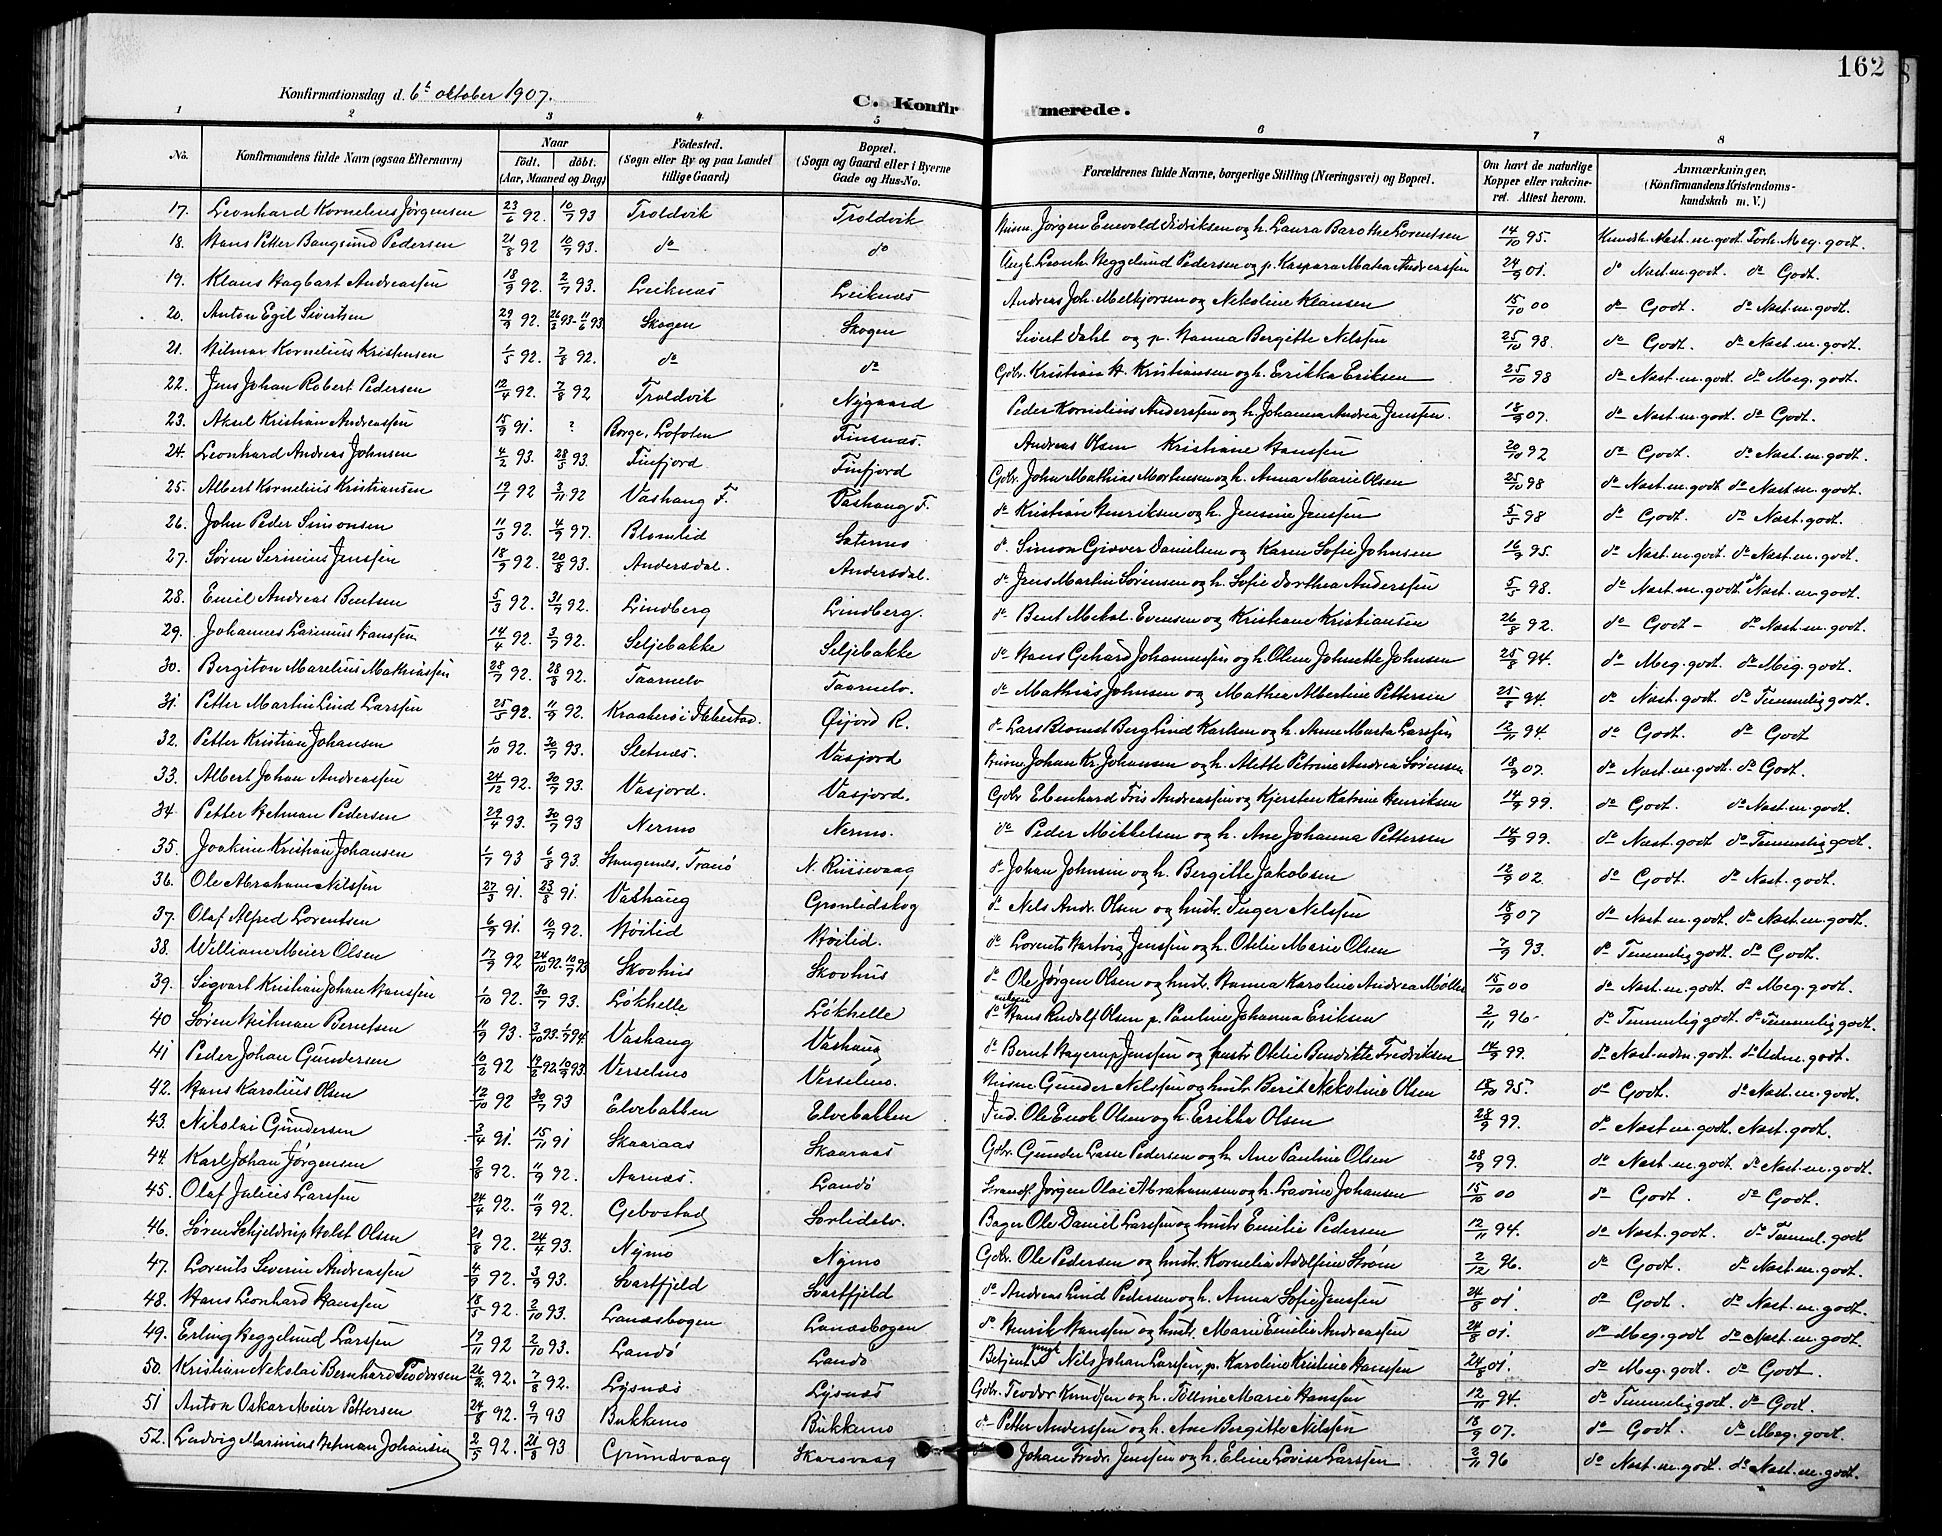 162
Konfirmationsdag d. 6t oktober 1907.
C. Konfirmerede.
1 2 3 4 5 6 7 8
No. Konfirmandens fulde Navn (ogsaa Efternavn) Naar født. døbt. (Aar, Maaned og Dag) Fødested. (Sogn eller By og paa Landet tillige Gaard) Bopæl. (Sogn og Gaard eller i Byerne Gade og Hus-No. Forældrenes fulde Navne, borgerlige Stilling (Næringsvei) og Bopæl. Om havt de naturlige Kopper eller vakcineret. Attest herom. Anmærkninger. (Konfirmandens Kristendomskundskab m. V.)
17. Leonhard Kornelius Jørgensen 23/6 92. 10/7 93 Troldvik Troldvik Husm. Jørgen Enevold Didriksen og h. Laura Barothe Lorentsen 14/10 95. Kundsk. Nast. m. godt. Forh. Meg. godt.
18. Hans Petter Bangsund Pedersen 21/8 92 10/7 93. do do Ungk. Leonh. Heggelund Pedersen og p. Kaspara Matea Andreassen 24/9 01. do Nast. m. godt. do Godt.
19. Klaus Hagbart Andreassen 18/9 92. 2/7 93. Leiknæs Leiknæs Andreas Joh. Melkjorsen og Nekoline Klausen 15/10 00 do Godt. do Nast. m. godt.
20. Anton Egil Sivertsen 29/9 92. 26/3 93 - 11/6 93 Skogen Skogen Sivert Dahl og p. Hanna Bergitte Nilsen 25/10 98. do Godt. do Nast. m. godt.
21. Hilmar Kornelius Kristensen 1/5 92. 7/8 92. do do Gdbr. Kristian H. Kristiansen og h. Erikka Eriksen 25/10 98 do Nast. m. godt. do Meg. godt.
22. Jens Johan Robert Pedersen 12/4 92. 7/8 92 Troldvik Nygaard Peder Kornelius Anderssen og h. Johanna Andrea Jenssen. 18/9 07. do Nast. m. godt. do Godt.
23. Aksel Kristian Andreassen 15/9 91. ? Borge, Lofoten Finsnæs. Andreas Olsen Kristiane Hanssen 20/10 92 do Godt. do Nast. m. godt.
24. Leonhard Andreas Johnsen 4/2 93. 28/5 93. Finfjord Finfjord Gdbr. John Mathias Mortensen og h. Anna Marie Olsen 25/10 98 do Nast. m. godt do Nast. m. godt.
25. Albert Kornelius Kristiansen 19/1 92 3/11 92 Vashaug F. Vashaug F. do Kristian Henriksen og h. Jensine Jenssen 5/5 98 do Godt. do Nast. godt.
26. John Peder Simonsen 11/3 92. 4/9 97. Blomlid Sætermo d. Simon Giæver Danielsen og Karen Sofie Johnsen 16/9 95. do Nast. m. godt. do Nast. m. godt.
27. Søren Serinius Jenssen 18/9 92. 20/8 93. Andersdal. Andersdal. do Jens Martin Sørensen og h. Sofie Dorthea Anderssen 5/5 98. do Nast. m. godt do Nast. m. godt.
28. Emil Andreas Bentsen 5/3 92. 31/7 92. Lindberg Lindberg. do Bent Mekal Evensen og Kristiane Kristiansen 26/8 92. do Godt - do Nast. m. godt.
29. Johannes Larinius Hanssen 14/4 92. 3/7 92. Seljebakke Seljebakke do Hans Gehard Johannessen og h. Oline Johnette Johnsen 25/8 94. do Meg. godt. do Meg. godt.
30. Bergiton Marelius Mathiassen 28/7 92. 28/8 92. Taarnelv Taarnelv. do Mathias Johnsen og Mathea Albertine Pettersen 21/8 94. do Nast. godt. do Temmelig godt.
31. Petter Martin Lind Larssen 25/5 92. 11/9 92. Kraakerø i Ibbestad. Øijord R. do Lars Blomst Berg Lind Karlsen og h. Anne Marta Larssen 12/11 94. do Godt. do Godt
32. Petter Kristian Johansen 1/10 92. 30/7 93. Sletnæs. Vasjord Husm. Johan Kr. Johansen og h. Alette Petrine Andrea Sørensen 18/9 07. do Nast. m. godt. do Godt.
33. Albert Johan Andreassen 24/12 92. 30/7 93. Vasjord. Vasjord. Gdbr Ebenhard Friis Andreassen og Kjersten Katrine Henriksen 14/9 99. do Godt. do Nast. m. godt.
34. Petter Hetman Pedersen 29/4 93. 30/7 93 Nermo Nermo. do Peder Mikkelsen og h. Ane Johanna Pettersen 14/9 99. do Nast. godt do Temmelig godt.
35. Joakim Kristian Johansen 1/7 93 6/8 93. Stangenes, Tranø N. Russevaag do Johan Johnsen og h. Bergitte Jakobsen 12/9 02. do Godt. do Nast. godt.
36. Ole Abraham Nilssen 27/3 91. 23/8 91. Vashaug Grønlidskog do Nels Andr. Olsen og hustr. Inger Nilssen 18/9 07 do Nast. m. godt. do Nast. m. godt.
37. Olaf Alfred Lorentsen 6/9 91. 10/7 92. Høilid Høilid. do Lorents Hartvig Jenssen og h. Otilie Marie Olsen 7/9 93. do Temmelig godt. do Godt.
38. William Meier Olsen 17/9 92 24/10 92. 10/9 93 Skovhus Skovhus do Ole Jørgen Olsen og hust. Hanna Karoline Andrea Møller 15/10 00 do Nast. m. godt. do Meg. godt.
39. Sigvart Kristian Johan Hanssen 1/10 92. 30/7 93. Løkhelle Løkhelle do enkem. Hans Rudolf Olsen p. Pauline Johanna Eriksen 2/11 96 do Temmelig godt. do Temmelig godt.
40 Søren Hetman Berntsen 11/9 93. 3/10 93. 1/9 94 Vashaug Vashaug do Bernt Hagerup Jenssen og hustr Otilie Bendikte Fredriksen 14/9 99. do Nast. udm. godt. do Udm. godt.
41 Peder Johan Gundersen 10/2 92 19/2 92. 10/9 93. Vesselmo Vesselmo. Husm Gunder Nilssen og hustr. Berit Nekoline Olsen 18/10 95. do Godt. do Nast. m. godt.
42. Hans Karolius Olsen 12/10 92 30/7 93 Elvebakken Elvebakken Ind. Ole Enok Olsen og h. Erikke Olsen 28/9 99. do Nast. m. godt. Nast. godt.
43. Nikolai Gundersen 3/4 91. 15/11 91 Skaaraas Skaaraas Gdbr. Gunder Lasse Pedersen og h. Ane Pauline Olsen 28/9 99. do Nast. m. godt. do Nast. m. godt.
44. Karl Johan Jørgensen 9/8 92. 11/9 92. Aarnæs. Landø Strandf. Jørgen Olai Abrahamsen og h. Lavine Johansen 15/10 00 do Godt. do Godt.
45. Olaf Julius Larssen 24/4 92. 11/9 92. Gebostad Sørlidelv. Bager Ole Daniel Larssen og hustr Emilie Pedersen 12/11 94. do Nast. godt. do Temmel. godt
46. Søren Schjeldrup Holst Olsen 21/8 92. 24/4 93. Nymo Nymo Gdbr. Ole Pedersen og hustr. Kornelia Adolfine Strøm 2/12 96. do Godt. do Nast. m. godt.
47. Lorents Severin Andreassen 4/9 92. 3/9 93. Svartfjeld Svartfjeld do Andreas Lind Pedersen og h. Anna Sofie Jenssen 24/8 01. do Godt. do Nast. m. godt.
48. Hans Leonhard Hanssen 18/5 92. 2/10 93. Lanæsbogen Lanæsbogen do Henrik Hanssen og hustr. Marie Emilie Andreassen 24/8 01. do Meg. godt do Nast. m. godt.
49. Erling Heggelund Larssen 19/11 92 2/10 93. Landø Landø Betjent ungk Nils Johan Larssen, p. Karoline Kristine Hanssen 24/8 01. do Meg. godt. do Godt.
50. Kristian Nekolai Bernhard Teodorsen 26/2 92. 7/8 92. Lysnæs Lysnæs Gdbr. Teodor Knudsen og h. Tolline Marie Hanssen 12/11 94. do Temmelig godt. do God.
51 Anton Oskar Meier Pettersen 24/8 92. 9/7 93 Bukkemo Bukkemo do Petter Anderssen og h. Ane Bergitte Nilssen 18/9 07. do Godt. do Meg. godt.
52. Ludvig Marinius Hetman Johansen 2/5 92. 21/8 93 Grundvaag Skarsvaag do Johan Fredr. Jenssen og h. Eline Lovise Larssen 2/11 96 do Nast. m. godt. do Nast. m. godt.